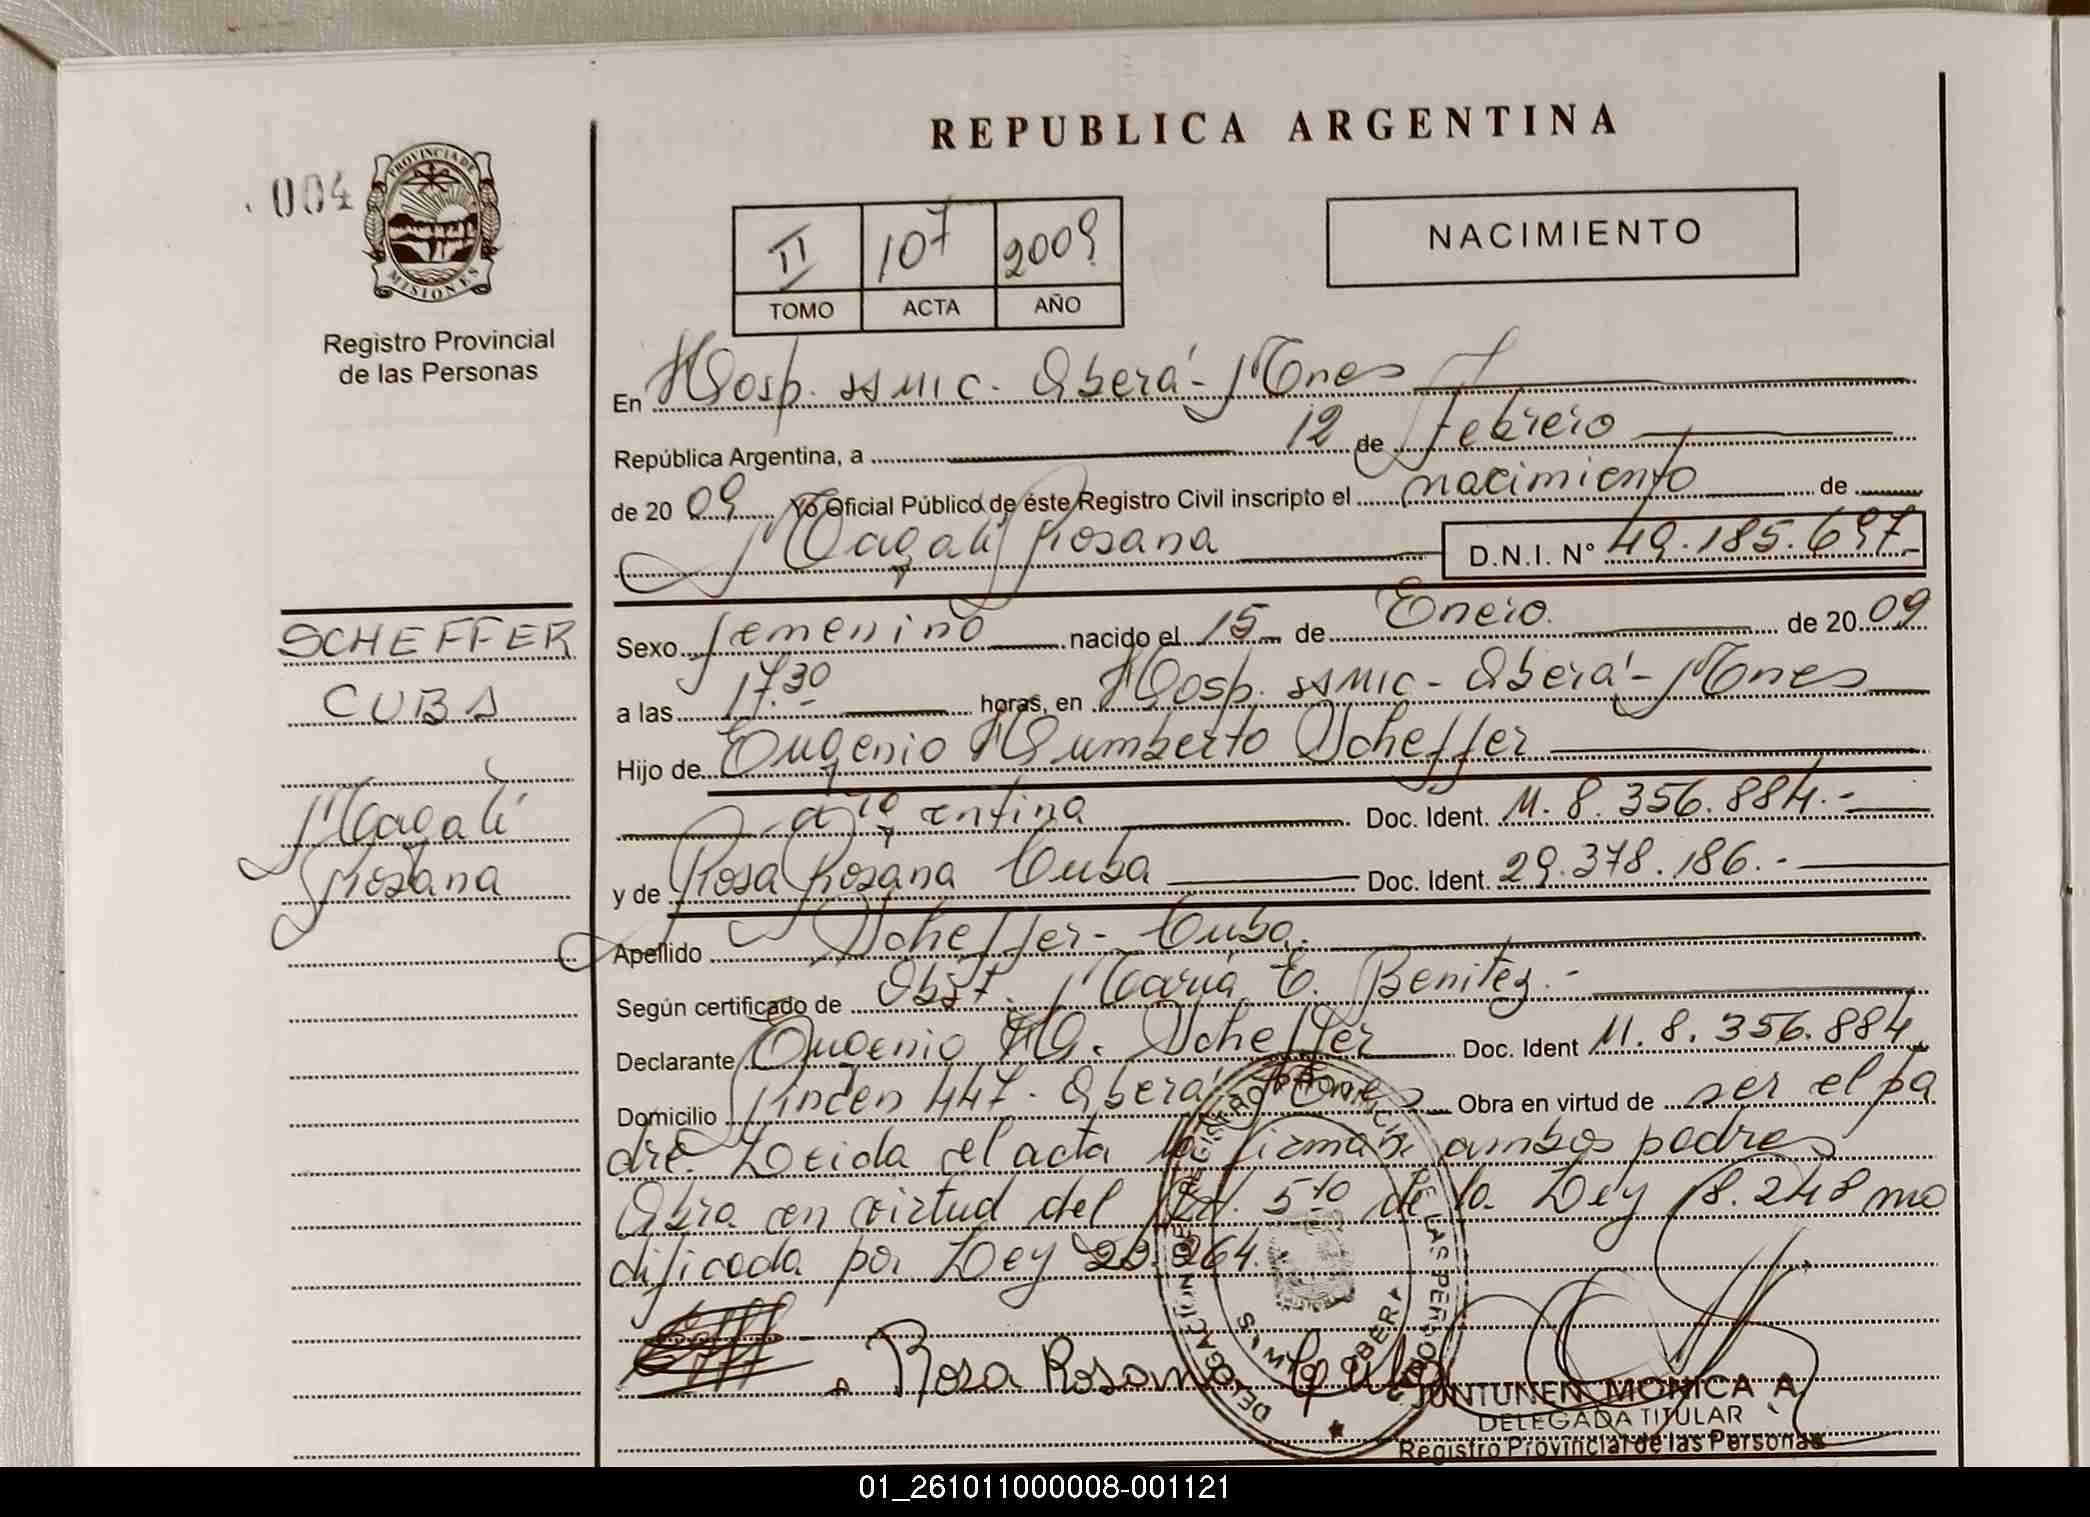 REPUBLICA ARGENTINA
004
PROVINCIA DE
MISIONES
Registro Provincial
de las Personas
II 107 2009
TOMO ACTA AÑO
NACIMIENTO
En Hosp. SSMIC. Oberá - Mnes
República Argentina, a 12 de Febrero
de 2009 Yo Oficial Público de éste Registro Civil inscripto el nacimiento de
Magali Rosana D.N.I. N° 49.185.697
SCHEFFER
CUBA
Magali
Rosana
Sexo femenino nacido el 15 de Enero de 2009
a las 17.30 horas, en Hosp. SSMIC - Oberá - Mnes
Hijo de Eugenio Humberto Scheffer
argentina Doc. Ident. M. 8.356.884.-
y de Rosa Rosana Cuba Doc. Ident. 29.378.186.-
Apellido Scheffer - Cuba.
Según certificado de Obst. María E. Benitez.-
Declarante Eugenio H. Scheffer Doc. Ident M. 8.356.884.
Domicilio 447. Oberá Mnes Obra en virtud de ser el pa
dre. Leida el acta la firman ambos padres
Obra en virtud del Art. 5to de la Ley 18.248 mo
dificada por Ley 20.264.
Rosa Rosana Cuba
DELEGACION DEL REGISTRO PROVINCIAL DE LAS PERSONAS
OBERA
JUNTUNEN MONICA A.
DELEGADA TITULAR
Registro Provincial de las Personas
01_261011000008-001121